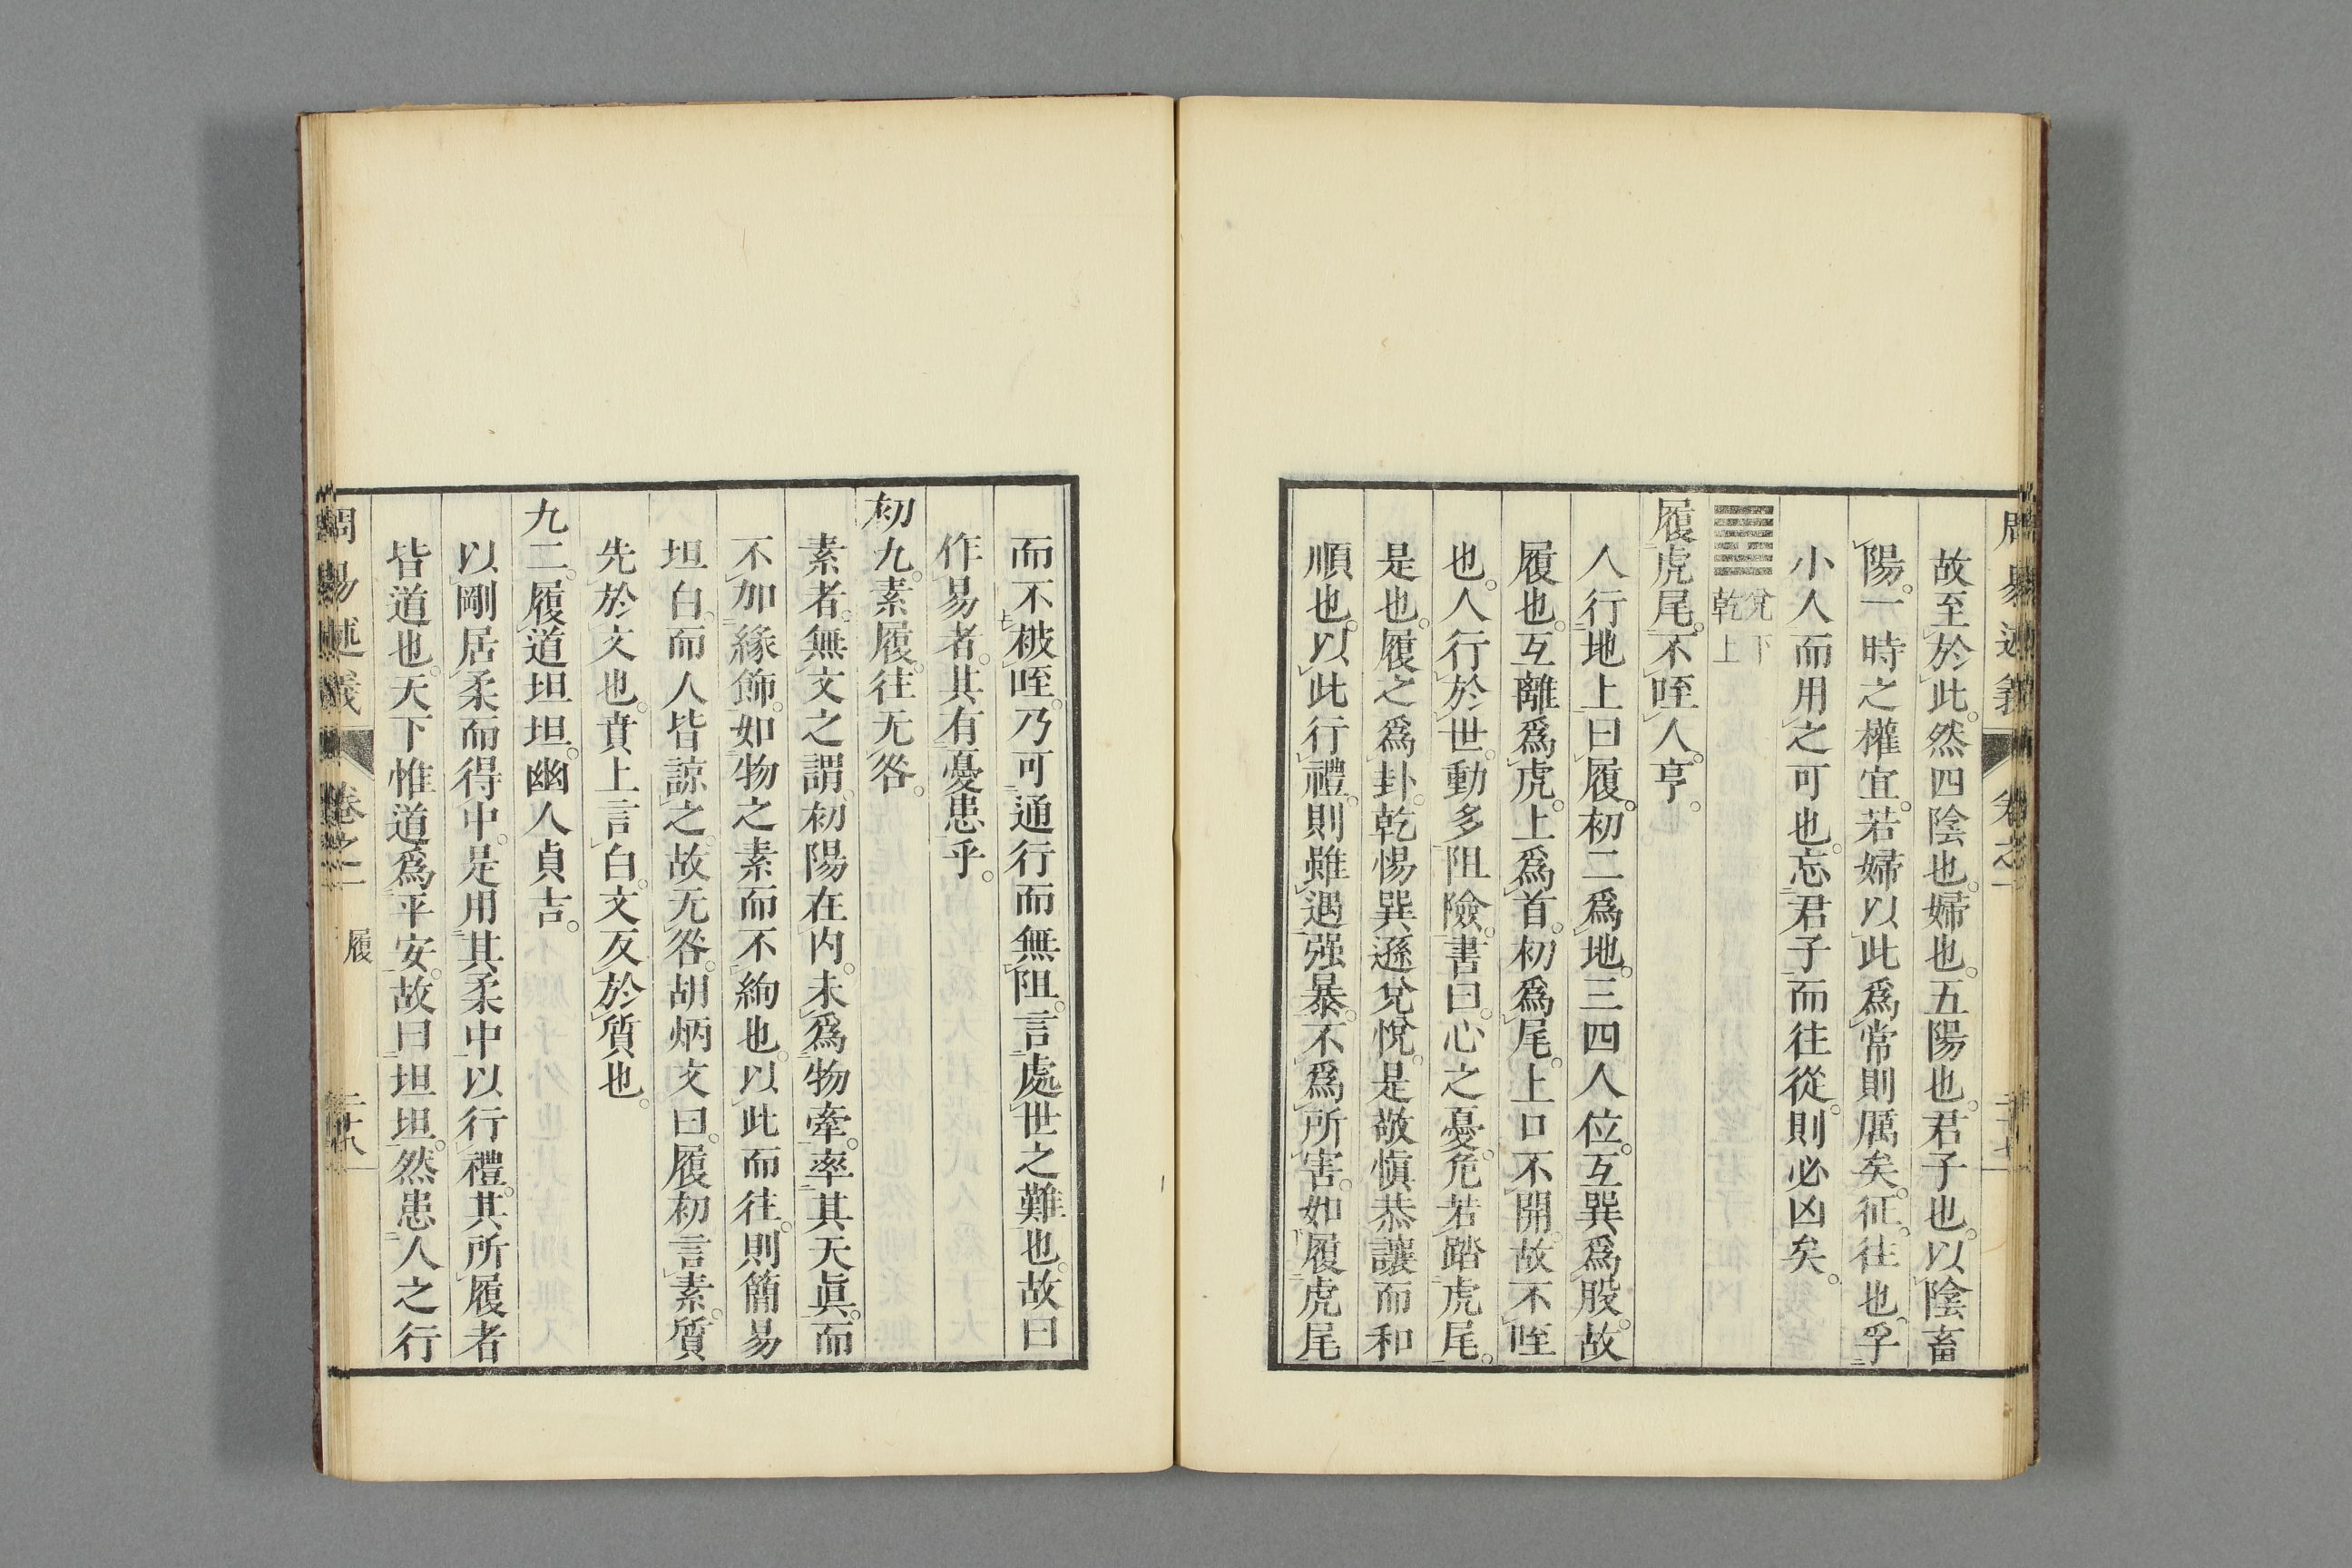 周易述義 卷之一 二十七
故至於此。然四陰也。婦也。五陽也。君子也。以陰畜
陽。一時之權宜。若婦以此爲常則厲矣。征。往也。孚
小人而用之可也。忘君子而往從。則必凶矣。
兌下
乾上
履虎尾。不咥人。亨。
人行地上曰履。初二爲地。三四人位。互巽爲股。故
履也。互離爲虎。上爲首。初爲尾。上口不開。故不咥
也。人行於世。動多阻險。書曰。心之憂。危若蹈虎尾。
是也。履之爲卦。乾惕巽遜兌悅。是敬愼恭讓而和
順也。以此行禮。則雖遇强暴。不爲所害。如履虎尾
而不被咥。乃可通行而無阻。言處世之難也。故曰
作易者。其有憂患乎。
初九。素履。往无咎。
素者。無文之謂。初陽在内。未爲物牽。率其天眞。而
不加緣飾。如物之素而不絢也。以此而往。則簡易
坦白。而人皆諒之。故无咎。胡炳文曰。履初言素。質
先於文也。賁上言白。文反於質也。
九二。履道坦坦。幽人貞吉。
以剛居柔而得中。是用其柔中以行禮。其所履者
皆道也。天下惟道爲平安。故曰坦坦。然患人之行
周易述義 卷之一 履 二十八